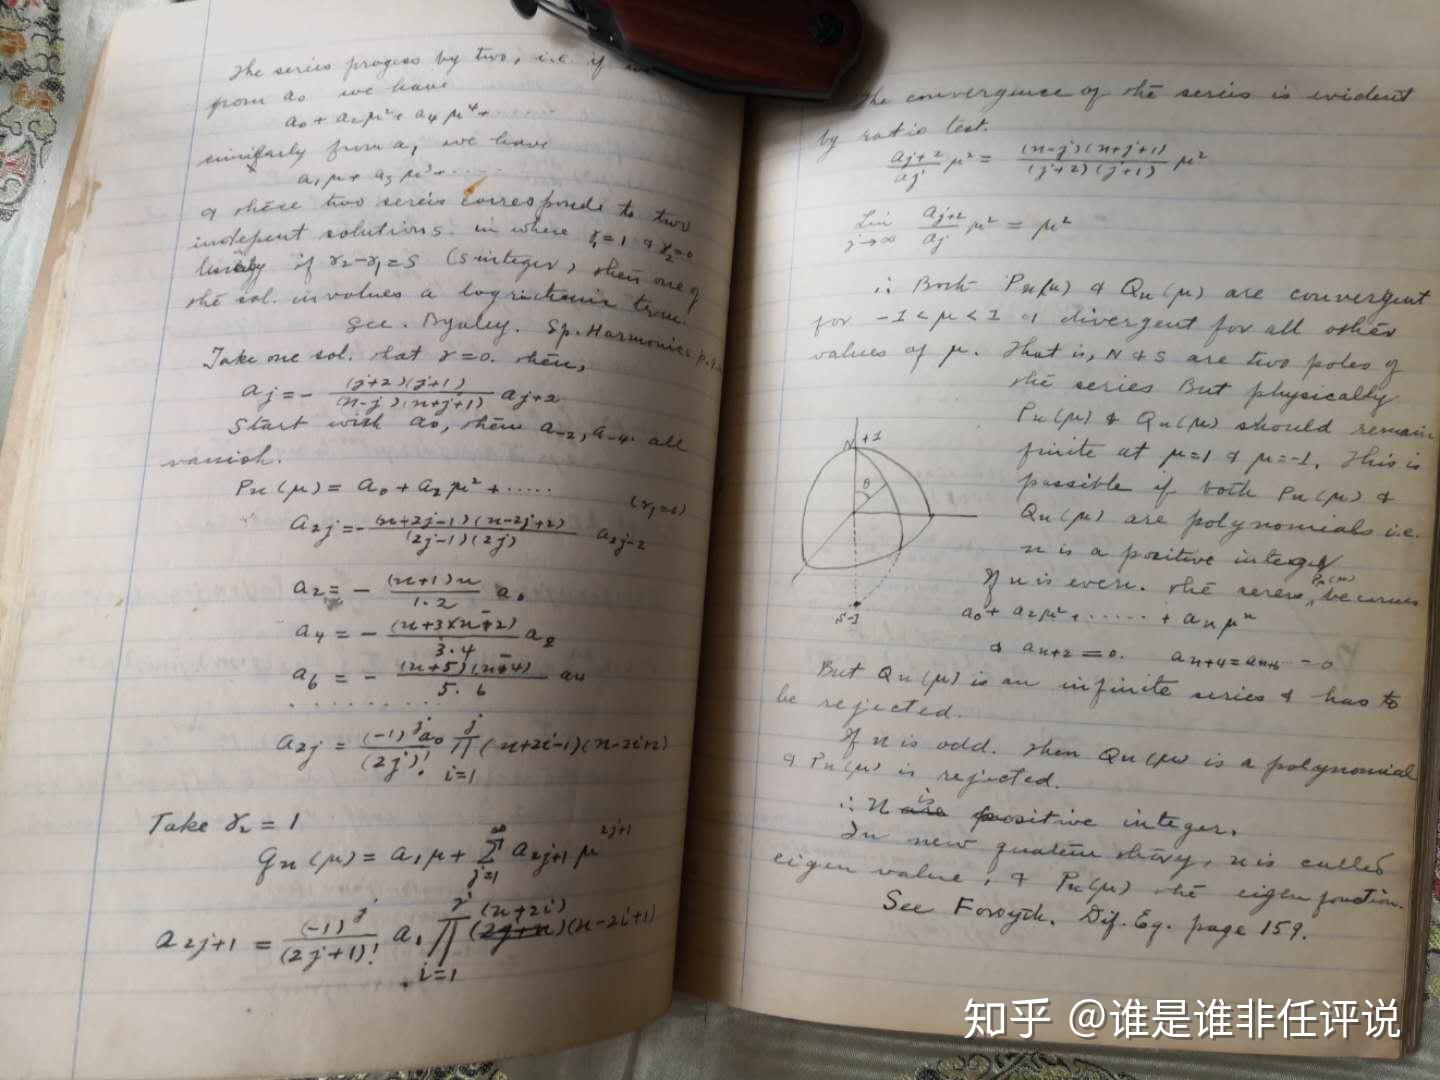 The series progess by two, i.e. if
from a₀ we have
a₀ + a₂μ² + a₄μ⁴ + ......
similarly from a, we have
a₁μ + a₃μ³ + .....
& these two series corresponds to two
indepent solutions. in where r₁=1 & r₂=0
if r₂-r₁=s (s integer) then one of
the sol. involves a term.
See. Byerley. Sp. Harmonics p.
Take one sol. that r=0. then,
aⱼ = - (j+2)(j+1) / (n-j)(n+j+1) aⱼ₊₂
Start with a₀, then a₋₂, a₋₄ all
vanish.
Pn(μ) = a₀ + a₂μ² + ..... (r₁=0)
a₂ⱼ = - (n+2j-1)(n-2j+2) / (2j-1)(2j) a₂ⱼ₋₂
a₂ = - (n+1)n / 1.2 a₀
a₄ = - (n+3)(n-2) / 3.4 a₂
a₆ = - (n+5)(n-4) / 5.6 a₄
..........
a₂ⱼ = (-1)ʲa₀ / (2j)! ∏ i=1 j (n+2i-1)(n-2i+2)
Take r₂ = 1
qn(μ) = a₁μ + ∑ j=1 ∞ a₂ⱼ₊₁ μ²ʲ⁺¹
a₂ⱼ₊₁ = (-1)ʲ / (2j+1)! a₁ ∏ i=1 j (n+2i)(n-2i+1)
The convergence of the series is evident
by ratio test.
aⱼ₊₂ / aⱼ μ² = (n-j)(n+j+1) / (j+2)(j+1) μ²
Lim j→∞ aⱼ₊₂ / aⱼ μ² = μ²
∴ Both Pn(μ) & Qn(μ) are convergent
for -1 < μ < 1 & divergent for all other
values of μ. That is, N & S are two poles of
the series But physically
Pn(μ) & Qn(μ) should remain
finite at μ=1 & μ=-1. This is
possible if both Pn(μ) &
Qn(μ) are polynomials i.e.
n is a positive integer
N +1
θ
S-1
If n is even. the series Pn(μ) becomes
a₀ + a₂μ² + ...... + aₙμⁿ
& aₙ₊₂ = 0. aₙ₊₄ = aₙ₊₆ ... = 0
But Qn(μ) is an infinite series & has to
be rejected.
If n is odd. then Qn(μ) is a polynomial
& Pn(μ) is rejected.
∴ n is positive integer.
In new quatum thery, n is called
eigen value, & Pn(μ) the eigen function.
See Forsyth. Dif. Eq. page 159.
知乎 @谁是谁非任评说